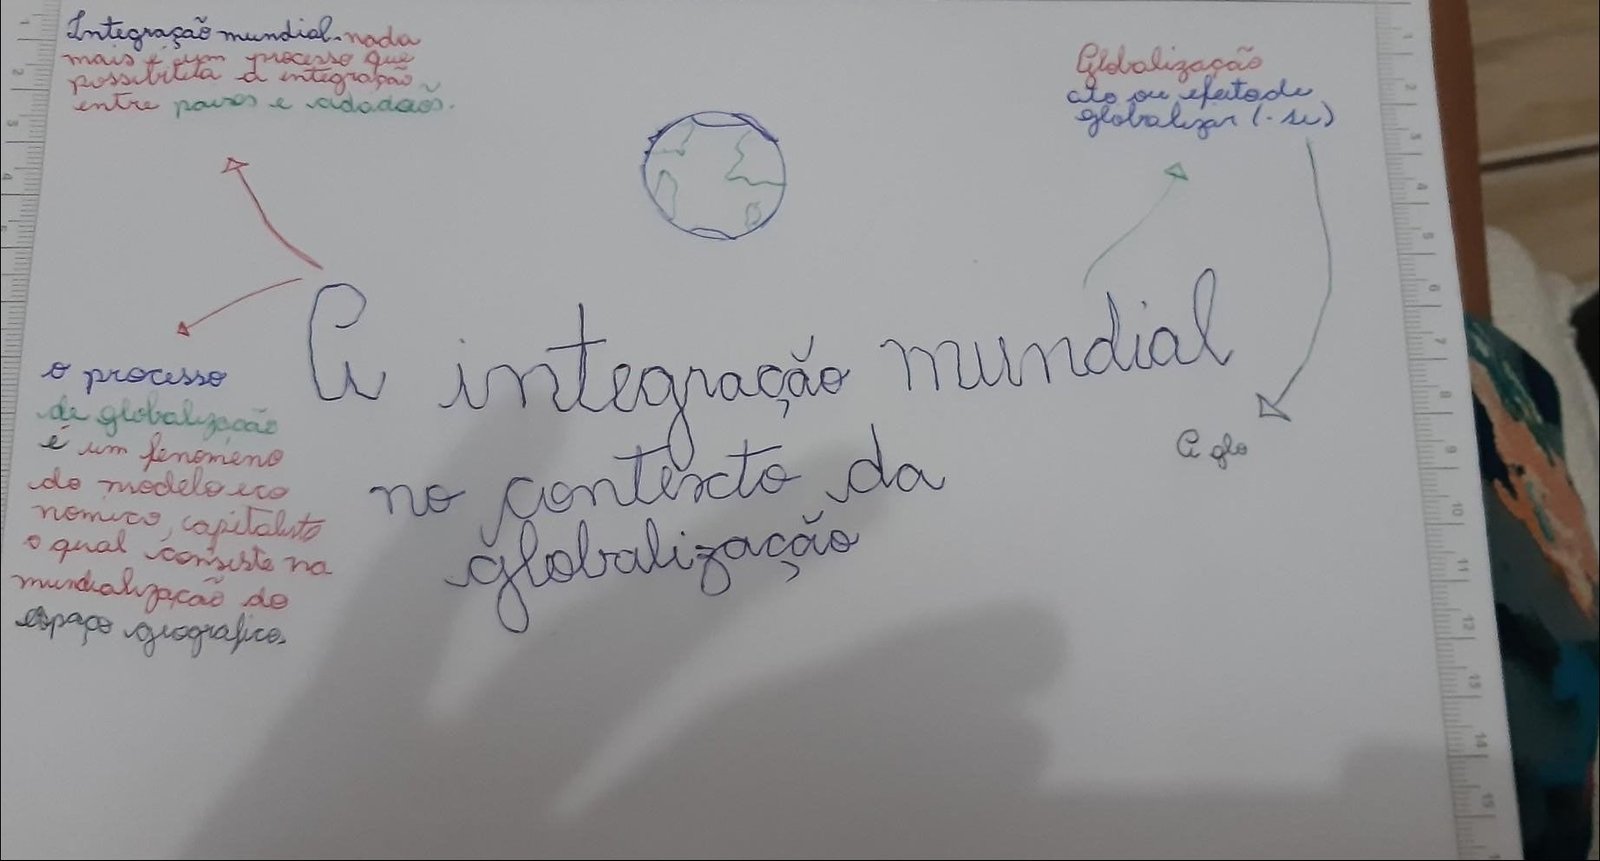 Integração mundial. nada
mais é um processo que
possibilita a integração
entre países e cidadãos.
Globalização
ato ou efeito de
globalizar (-se)
A integração mundial
no contexto da
globalização
o processo
de globalização
é um fenômeno
do modelo eco
nomico, capitalista
o qual consiste na
mundialização do
espaço geografico.
A glo